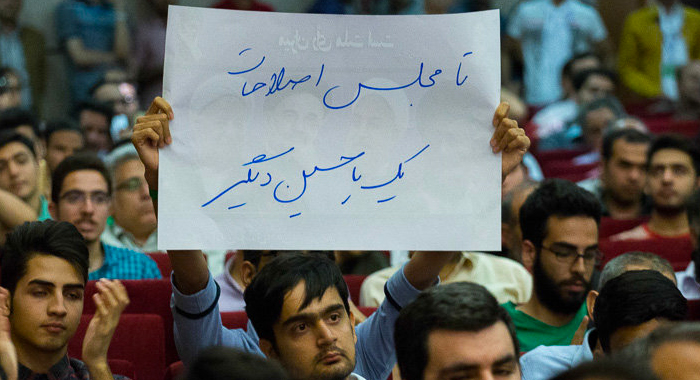 تا مجلس اصلاحات
یک یاحسین دیگر